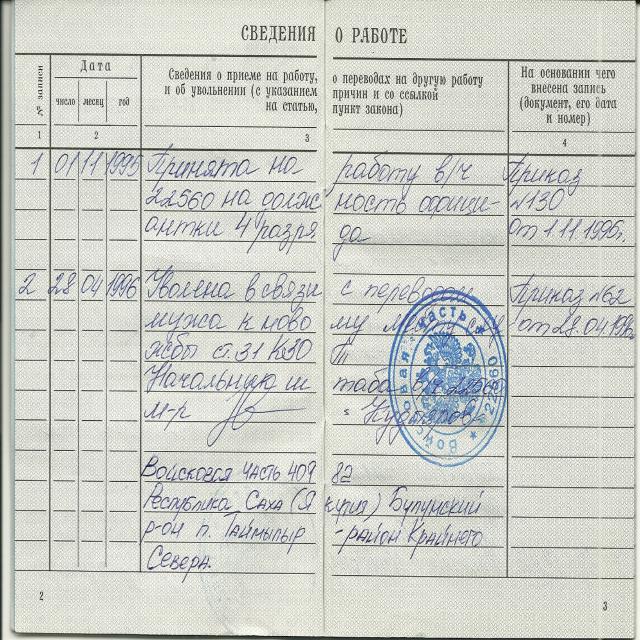 СВЕДЕНИЯ О РАБОТЕ
№ записи
Дата
число месяц год
Сведения о приеме на работу, о переводах на другую работу
и об увольнении (с указанием причин и со ссылкой
на статью, пункт закона)
На основании чего
внесена запись
(документ, его дата
и номер)
1 2 3 4
1 01 11 1995 Принята на работу в/ч Приказ
22560 на долж ность офици- №130
антки 4 разря да от 1.11.1995г.
2 28 04 1996 Уволена в связи с переводом Приказ №62
мужа к ново му от 28.04.1996
жбы ст.31 КЗО Т
Начальник ш таба в/ч 22560
м-р
Войсковая часть 409 82
Республика Саха (Я кутия) Булунский
р-он п. Таймылыр -район Крайнего
Севера.
Войсковая часть ★ 22560 ★
2 3